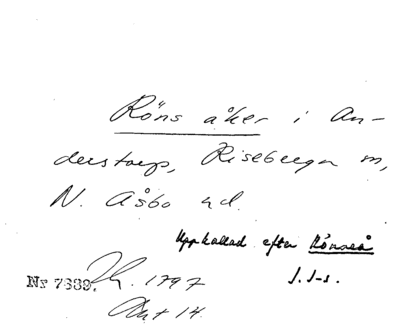 Röns åker i An-
derstorp, Riseberga sn,
N. Åsbo hd.
Uppkallad efter Rönneå
Nr 7689. 1797
J. J-s.
Akt 14